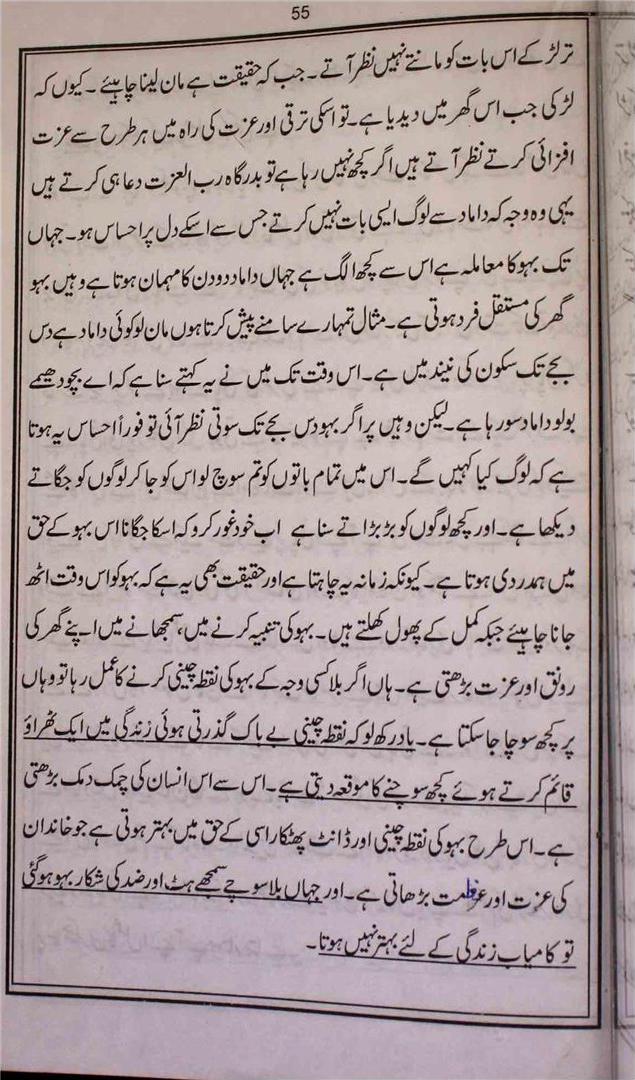 55
تر لڑکے اس بات کو مانتے نہیں نظر آتے۔ جب کہ حقیقت ہے مان لینا چاہیئے۔ کیوں کہ
لڑکی جب اس گھر میں دیدیا ہے۔ تو اسکی ترقی اور عزت کی راہ میں ہر طرح سے عزت
افزائی کرتے نظر آتے ہیں اگر کچھ نہیں رہا ہے تو بدرگاہ رب العزت دعا ہی کرتے ہیں
یہی وہ وجہ کہ داماد سے لوگ ایسی بات نہیں کرتے جس سے اسکے دل پر احساس ہو۔ جہاں
تک بہو کا معاملہ ہے اس سے کچھ الگ ہے جہاں داماد دو دن کا مہمان ہوتا ہے وہیں بہو
گھر کی مستقل فرد ہوتی ہے۔ مثال تمہارے سامنے پیش کرتا ہوں مان لو کوئی داماد ہے دس
بجے تک سکون کی نیند میں ہے۔ اس وقت تک میں نے یہ کہتے سنا ہے کہ اے بچو دھیمے
بولو داماد سو رہا ہے۔ لیکن وہیں پر اگر بہو دس بجے تک سوتی نظر آئی تو فوراً احساس یہ ہوتا
ہے کہ لوگ کیا کہیں گے۔ اس میں تمام باتوں کو تم سوچ لو اس کو جا کر لوگوں کو جگاتے
دیکھا ہے۔ اور کچھ لوگوں کو بڑبڑاتے سنا ہے اب خود غور کرو کہ اسکا جگانا اس بہو کے حق
میں ہمدردی ہوتا ہے۔ کیونکہ زمانہ یہ چاہتا ہے اور حقیقت بھی یہ ہے کہ بہو کو اس وقت اٹھ
جانا چاہیئے جبکہ کمل کے پھول کھلتے ہیں۔ بہو کی تنبیہ کرنے میں، سمجھانے میں اپنے گھر کی
رونق اور عزت بڑھتی ہے۔ ہاں اگر بلا کسی وجہ کے بہو کی نقطہ چینی کرنے کا عمل رہا تو وہاں
پر کچھ سوچا جا سکتا ہے۔ یاد رکھ لو کہ نقطہ چینی بے باک گذرتی ہوئی زندگی میں ایک ٹھراؤ
قائم کرتے ہوئے کچھ سوچنے کا موقعہ دیتی ہے۔ اس سے اس انسان کی چمک دمک بڑھتی
ہے۔ اس طرح بہو کی نقطہ چینی اور ڈانٹ پھٹکار اسی کے حق میں بہتر ہوتی ہے جو خاندان
کی عزت اور عظمت بڑھاتی ہے۔ اور جہاں بلا سوچے سمجھے ہٹ اور ضد کی شکار بہو ہو گئی
تو کامیاب زندگی کے لئے بہتر نہیں ہوتا۔